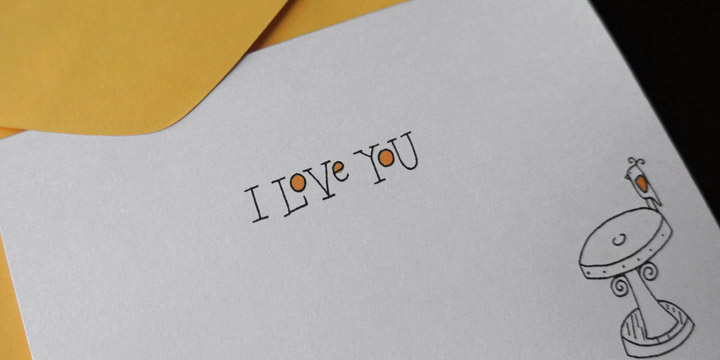 I LoVe YoU